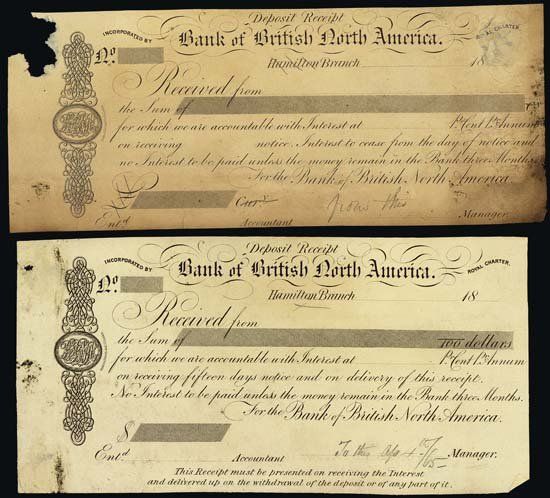 Deposit Receipt
INCORPORATED BY
ROYAL CHARTER
Bank of British North America.
Nº
Hamilton Branch 18
Received from
the Sum of
for which we are accountable with Interest at P. Cent P. Annum
on receiving notice. Interest to cease from the day of notice and
no Interest to be paid unless the money remain in the Bank three Months.
For the Bank of British North America.
Curʸ
from this
Entᵈ Accountant Manager.
Deposit Receipt
INCORPORATED BY
ROYAL CHARTER.
Bank of British North America.
Nº
Hamilton Branch 18
Received from
the Sum of 100 dollars
for which we are accountable with Interest at P. Cent P. Annum
on receiving fifteen days notice and on delivery of this receipt.
No Interest to be paid unless the money remain in the Bank three Months.
For the Bank of British North America.
$
To this
Entᵈ Accountant Manager.
This Receipt must be presented on receiving the Interest
and delivered up on the withdrawal of the deposit or of any part of it.